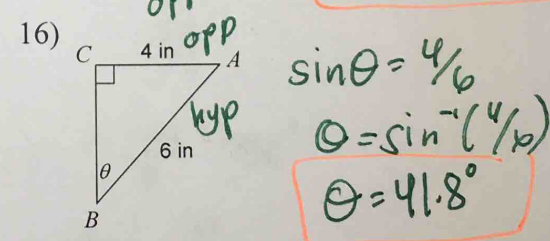 opp
16)
C 4 in opp A
hyp
6 in
θ
B
sinθ = 4/6
θ = sin⁻¹(4/6)
θ = 41.8°